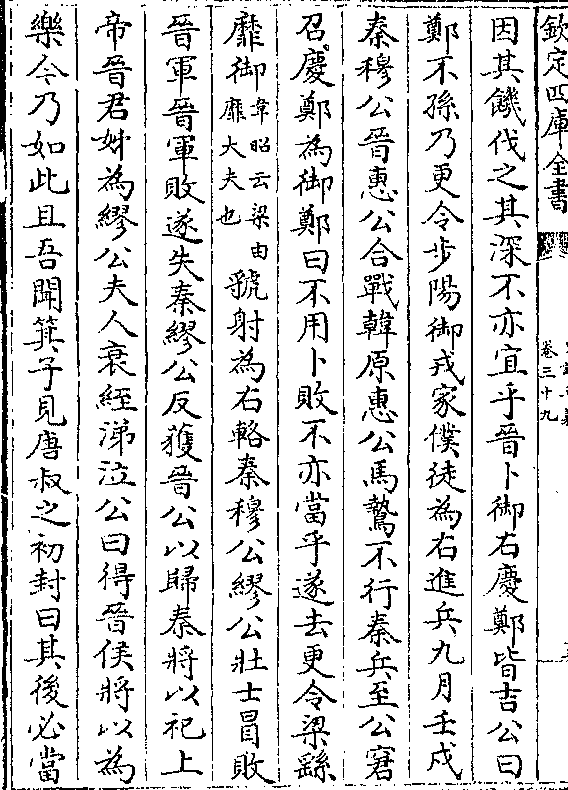 欽定四庫全書
卷三十九
因其饑伐之其深不亦宜乎晉卜御右慶鄭皆吉公曰
鄭不孫乃更令步陽御戎家僕徒為右進兵九月壬戌
秦穆公晉惠公合戰韓原惠公馬驇不行秦兵至公窘
召慶鄭為御鄭曰不用卜敗不亦當乎遂去更令梁繇
靡御韋昭云梁由靡大夫也虢射為右輅秦穆公繆公壯士冒敗
晉軍晉軍敗遂失秦繆公反獲晉公以歸秦將以祀上
帝晉君姊為繆公夫人衰絰涕泣公曰得晉侯將以為
樂今乃如此且吾聞箕子見唐叔之初封曰其後必當